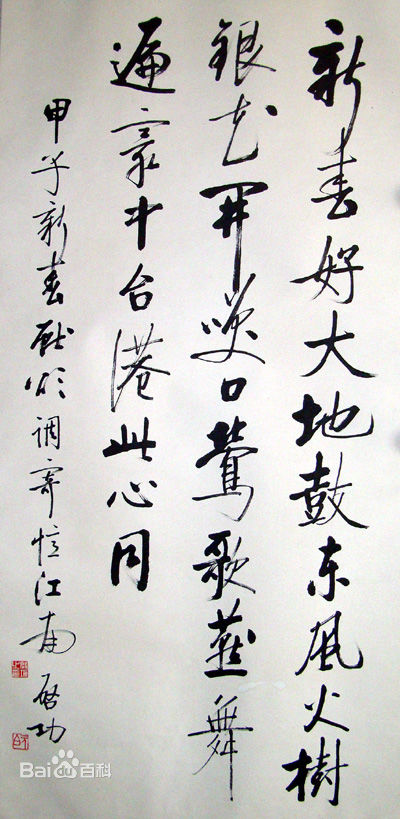 新春好大地鼓东风火樹
银花开笑口莺歌燕舞
遍寰中台港此心同
甲子新春献颂调寄忆江南 启功
Bai百科